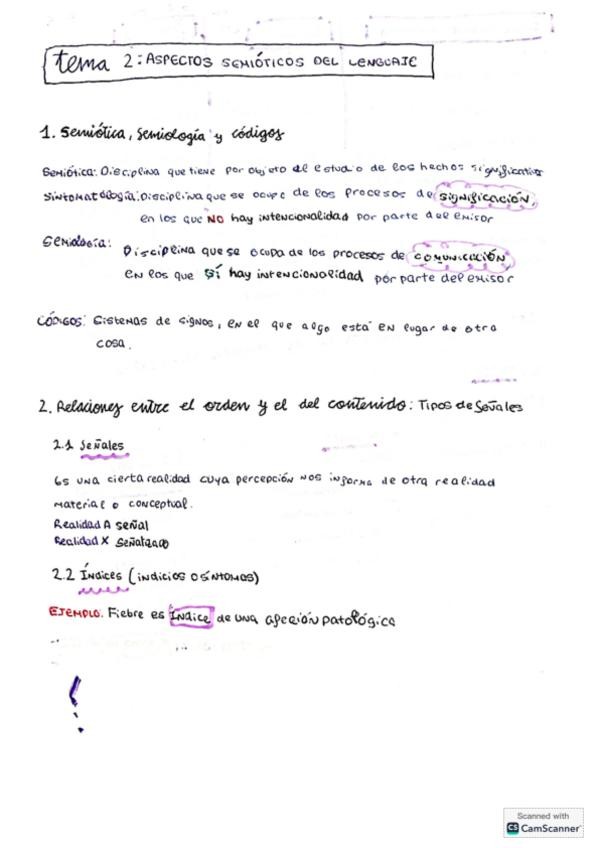 tema 2: ASPECTOS SEMIÓTICOS DEL LENGUAJE
1. Semiótica, Semiología y códigos
Semiótica: Disciplina que tiene por objeto el estudio de los hechos significativos
Sintomatología: Disciplina que se ocupe de los procesos de significación,
en los que NO hay intencionalidad por parte del emisor
Semiología: Disciplina que se ocupa de los procesos de comunicación,
en los que sí hay intencionalidad por parte del emisor
CÓDIGOS: Sistemas de signos, en el que algo está en lugar de otra
cosa.
2. Relaciones entre el orden y el del contenido: Tipos de Señales
2.1 Señales
Es una cierta realidad cuya percepción nos informa de otra realidad
material o conceptual.
Realidad A señal
Realidad X señalizado
2.2 Índices (indicios o síntomas)
EJEMPLO. Fiebre es índice de una afección patológica
Scanned with
CS CamScanner